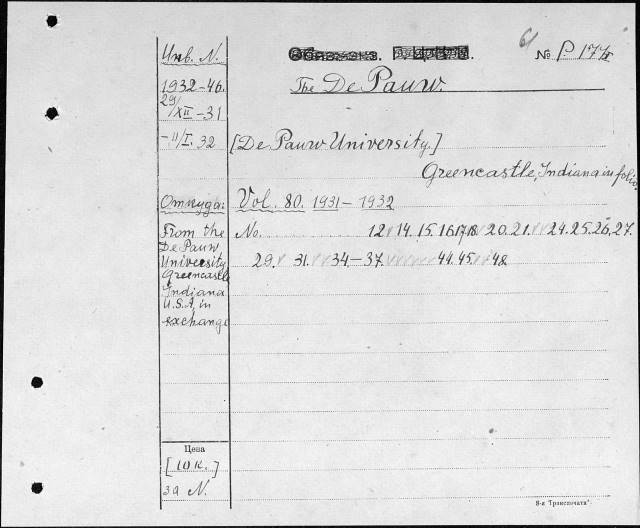 Инв. N.
1932-46.
29/XII-31
-11/I. 32
Откуда:
From the
De Pauw
University
Greencastle
Indiana
U.S.A. in
exchange
Цена
[10 к.]
за N.
№ P 177
The De Pauw.
[De Pauw University.]
Greencastle, Indiana in folio
Vol. 80. 1931-1932
No. 12 14. 15. 16. 17. 18 20. 21. 24. 25. 26. 27.
29. 31. 34-37. 44. 45. 48
8-я "Транспечати".